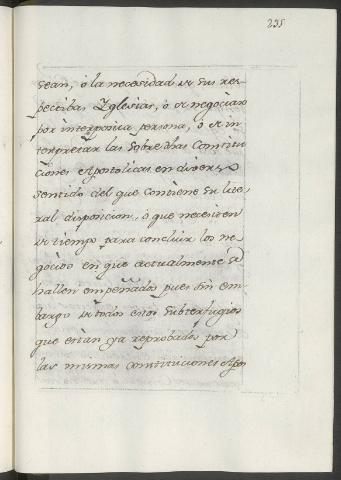 235
sean, o la necesidad de sus res-
pectibas Yglesias, o de negociar
por interposita persona, o de in-
terpretar las sobredhas Constitu-
ciones Apostolicas en diverso
sentido del que contiene su lite-
ral disposicion, o que necesiten
de tiempo para concluir los ne-
gocios en que actualmente se
hallen empeñados, pues sin em-
bargo de todos estos subterfugios
que estan ya reprobados por
las mismas constituciones Apos